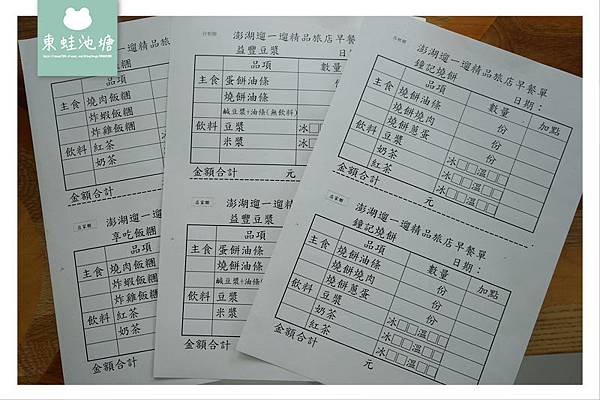 東蛙池塘
澎湖迴一迴精品旅店早餐
品項
主食 燒肉飯糰
炸蝦飯糰
炸雞飯糰
飲料 紅茶
奶茶
金額合計
澎湖迴一迴精
享吃飯糰
品項
主食 燒肉飯糰
炸蝦飯糰
炸雞飯糰
飲料 紅茶
奶茶
金額合計
澎湖迴一迴精品旅店早餐
益豐豆漿
品項 數量
主食 蛋餅油條
燒餅油條
鹹豆漿+油條(無飲料)
飲料 豆漿 冰□
米漿 冰□
金額合計 元
澎湖迴一迴精品
益豐豆漿
品項
主食 蛋餅油條
燒餅油條
鹹豆漿+油條
飲料 豆漿
米漿
金額合計
澎湖迴一迴精品旅店早餐單
鐘記燒餅 日期：
品項 數量 加點
主食 燒餅油條 份
燒餅燒肉 份
燒餅蔥蛋 份
飲料 豆漿 冰□□溫□□
奶茶 冰□□溫□□
紅茶 冰□□溫□□
金額合計 元
澎湖迴一迴精品旅店早餐單
鐘記燒餅 日期：
品項 數量 加點
主食 燒餅油條 份
燒餅燒肉 份
燒餅蔥蛋 份
飲料 豆漿 冰□□溫□□
奶茶 冰□□溫□□
紅茶 冰□□溫□□
金額合計 元